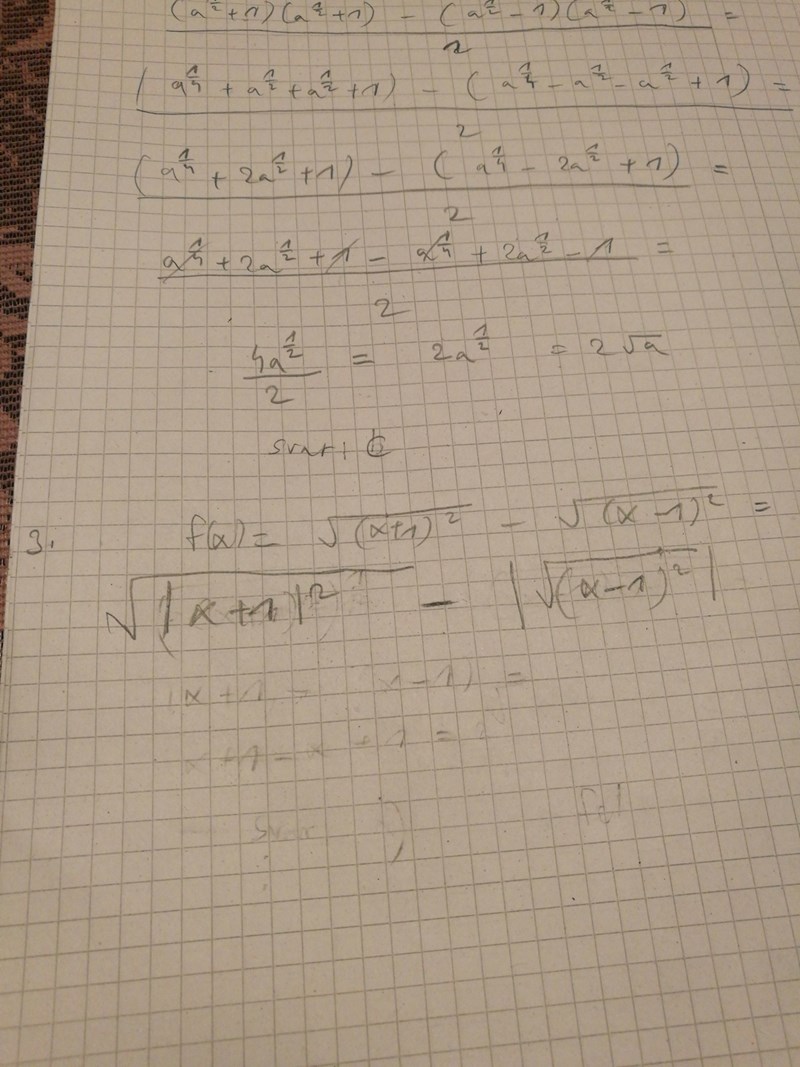 (a^½+1)(a^½+1) - (a^½-1)(a^½-1) =
2
(a^¼ + a^½ + a^½ + 1) - (a^¼ - a^½ - a^½ + 1) =
2
(a^¼ + 2a^½ + 1) - (a^¼ - 2a^½ + 1) =
2
a^¼ + 2a^½ + 1 - a^¼ + 2a^½ - 1 =
2
4a^½ = 2a^½ = 2√a
2
svar: C
3. f(x) = √(x+1)² - √(x-1)² =
√|x+1|² - |√(x-1)²|
(x+1 - (x-1) =
x+1-x+1 = 2
Svar:
fel